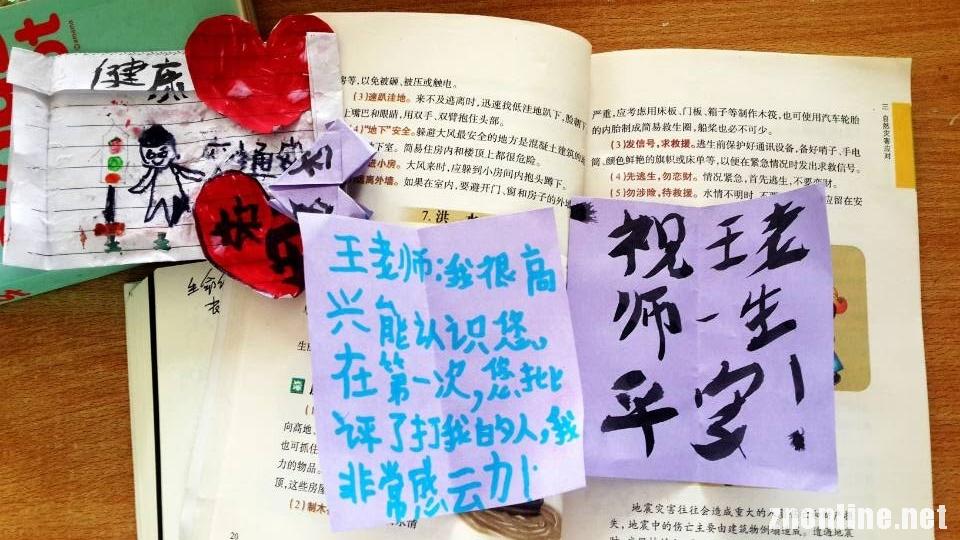 健康
交通安
快乐
王老师:我很高
兴能认识您。
在第一次,您批
评了打我的人,我
非常感动!
祝王老
师一生
平安!
房等,以免被砸、被压或触电。
(3)速趴洼地。来不及逃离时,迅速找低洼地趴下,脸朝下
上嘴巴和眼睛,用双手、双臂抱住头部。
(4)“地下”安全。躲避大风最安全的地方是混凝土建筑的
下室。简易住房内和楼顶上都很危险。
进小房。大风来时,应躲到小房间内抱头蹲下。
离外墙。如果在室内,要避开门、窗和房子的外
7.洪水
向高地、
也可抓住
力的物品。
顶,这些房屋
(2)制木
20
严重,应考虑用床板、门板、箱子等制作木筏,也可使用汽车轮胎
的内胎制成简易救生圈,船桨也必不可少。
(3)发信号,求救援。逃生前保护好通讯设备,备好哨子、手电
筒、颜色鲜艳的旗帜或床单等,以便在紧急情况时发出求救信号。
(4)先逃生,勿恋财。情况紧急,首先逃生,不要恋财。
(5)勿涉险,待救援。水情不明时,不要 应留在安
三 自然灾害应对
地震灾害往往会造成重大的
失,地震中的伤亡主要由建筑物倒塌造成。遭遇地震
znonline.net